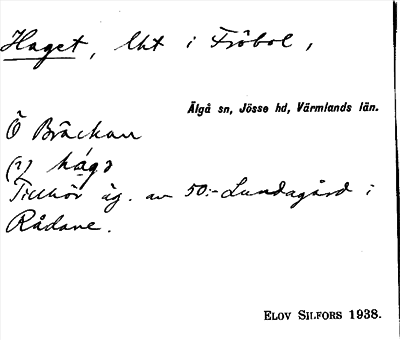 Haget, lht i Fröbol,
Älgå sn, Jösse hd, Värmlands län.
Ö Bräckan
(1) hágə
Tillhör äg. av 50:- Lundagård i
Rådane.
ELOV SILFORS 1938.